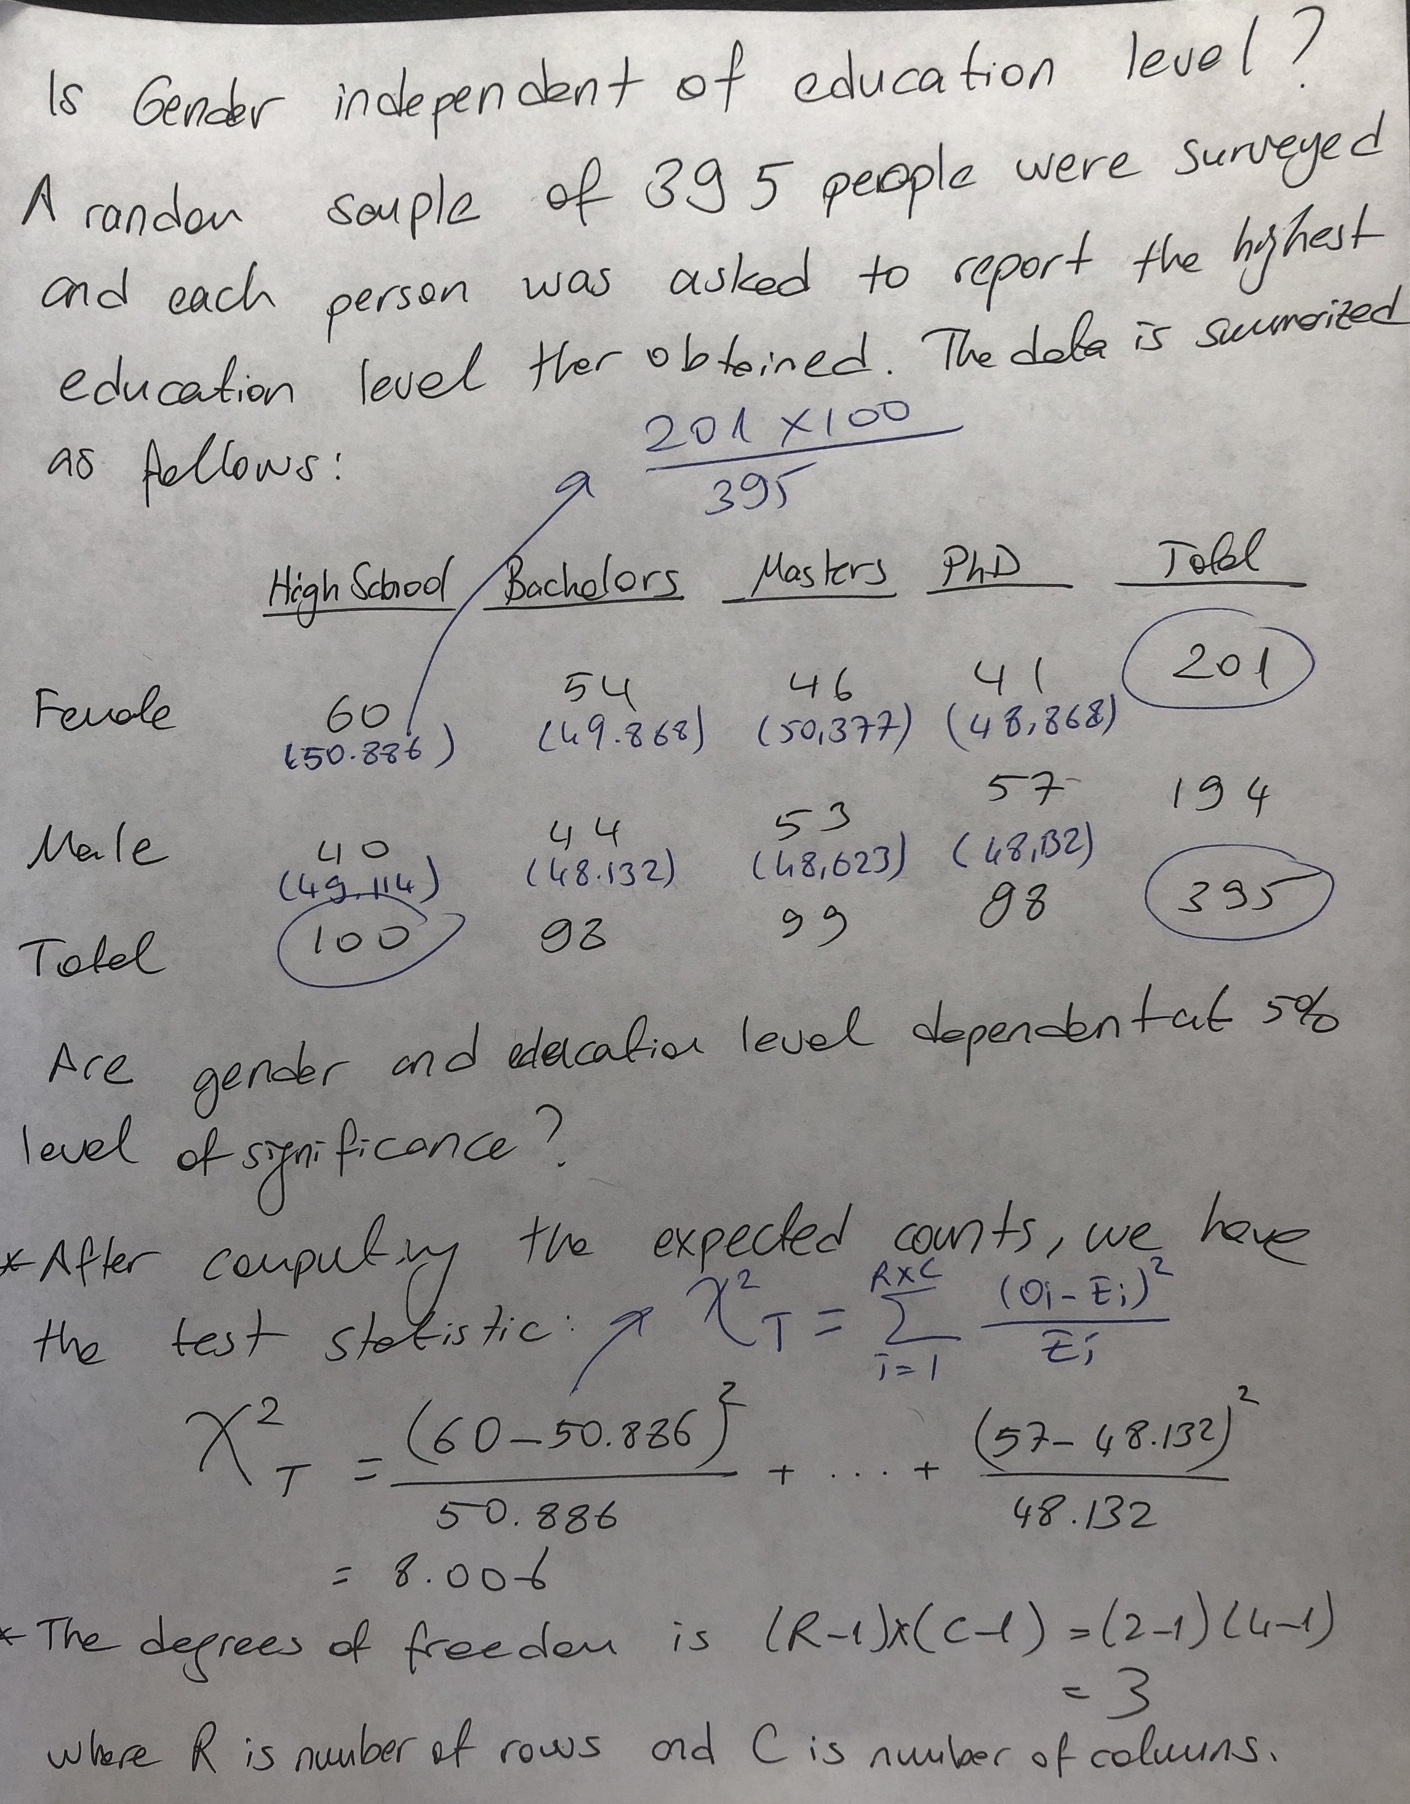 Is Gender independent of education level?
A random sample of 395 people were surveyed
and each person was asked to report the highest
education level ther obtained. The data is summerized
as follows:
201 x 100
395
High School Bachelors Masters PhD Total
Female 60 54 46 41 201
(50.886) (49.868) (50,377) (48,868)
Male 40 44 53 57 194
(49.114) (48.132) (48,623) (48,132)
Total 100 98 99 98 395
Are gender and education level dependent at 5%
level of significance?
* After computing the expected counts, we have
the test statistic: χ²T = Σ (Oi - Ei)² / Ei
RxC
i=1
χ²T = (60-50.886)² / 50.886 + ... + (57-48.132)² / 48.132
= 8.006
* The degrees of freedom is (R-1)x(C-1) = (2-1)(4-1)
= 3
where R is number of rows and C is number of columns.